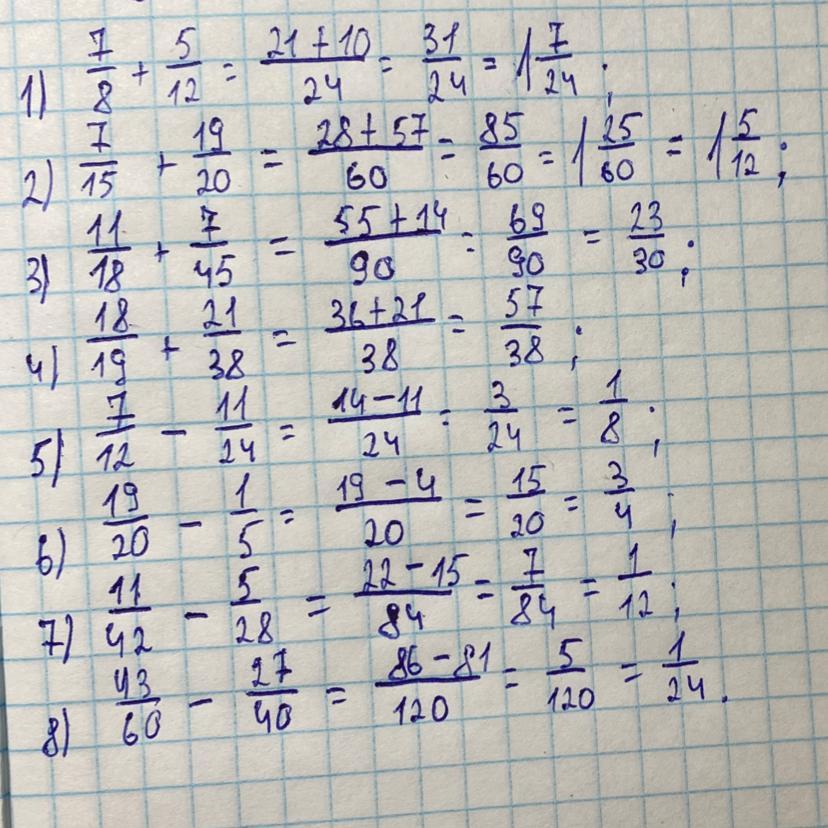 1) 7/8 + 5/12 = (21+10)/24 = 31/24 = 1 7/24;
2) 7/15 + 19/20 = (28+57)/60 = 85/60 = 1 25/60 = 1 5/12;
3) 11/18 + 7/45 = (55+14)/90 = 69/90 = 23/30;
4) 18/19 + 21/38 = (36+21)/38 = 57/38;
5) 7/12 - 11/24 = (14-11)/24 = 3/24 = 1/8;
6) 19/20 - 1/5 = (19-4)/20 = 15/20 = 3/4;
7) 11/42 - 5/28 = (22-15)/84 = 7/84 = 1/12;
8) 43/60 - 27/40 = (86-81)/120 = 5/120 = 1/24.